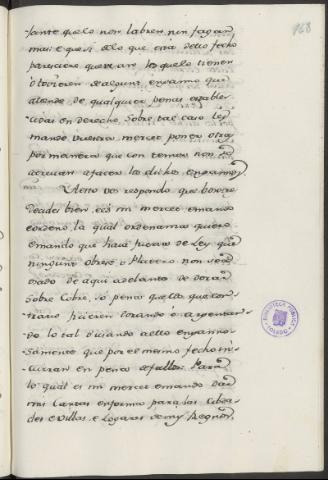 168
-sante que lo non labren, nin fagan
mas: e que si alo que esta desto fecho
paresciere, que vean los que lo tienen
obovieren de alguno engannio que
alende de qualquier penas estable-
cidas en derecho sobre tal caso ley
mande vuestra merced poner otra
por manera que con temor non se
atrevan a facer los dichos engannos.
A esto vos respondo que
decides bien, e es mi merced, e mando
e ordeno, la qual ordenanza quiero
e mando que haia fuerza de Ley, que
ninguno obrero o Platero non sea
osado de aqui adelante de dorar
sobre Cobre, so pena que el que con-
trario ficiere dorando o argentan-
do lo tal diciendo a esto engannio-
samente que por el mismo fecho in-
curran en pena de falso. Para
lo qual es mi merced e mando dar
mis Cartas en forma para las Cibda-
des e Villas, e Logares de mis Regnos.
BIBLIOTECA PUBLICA
TOLEDO